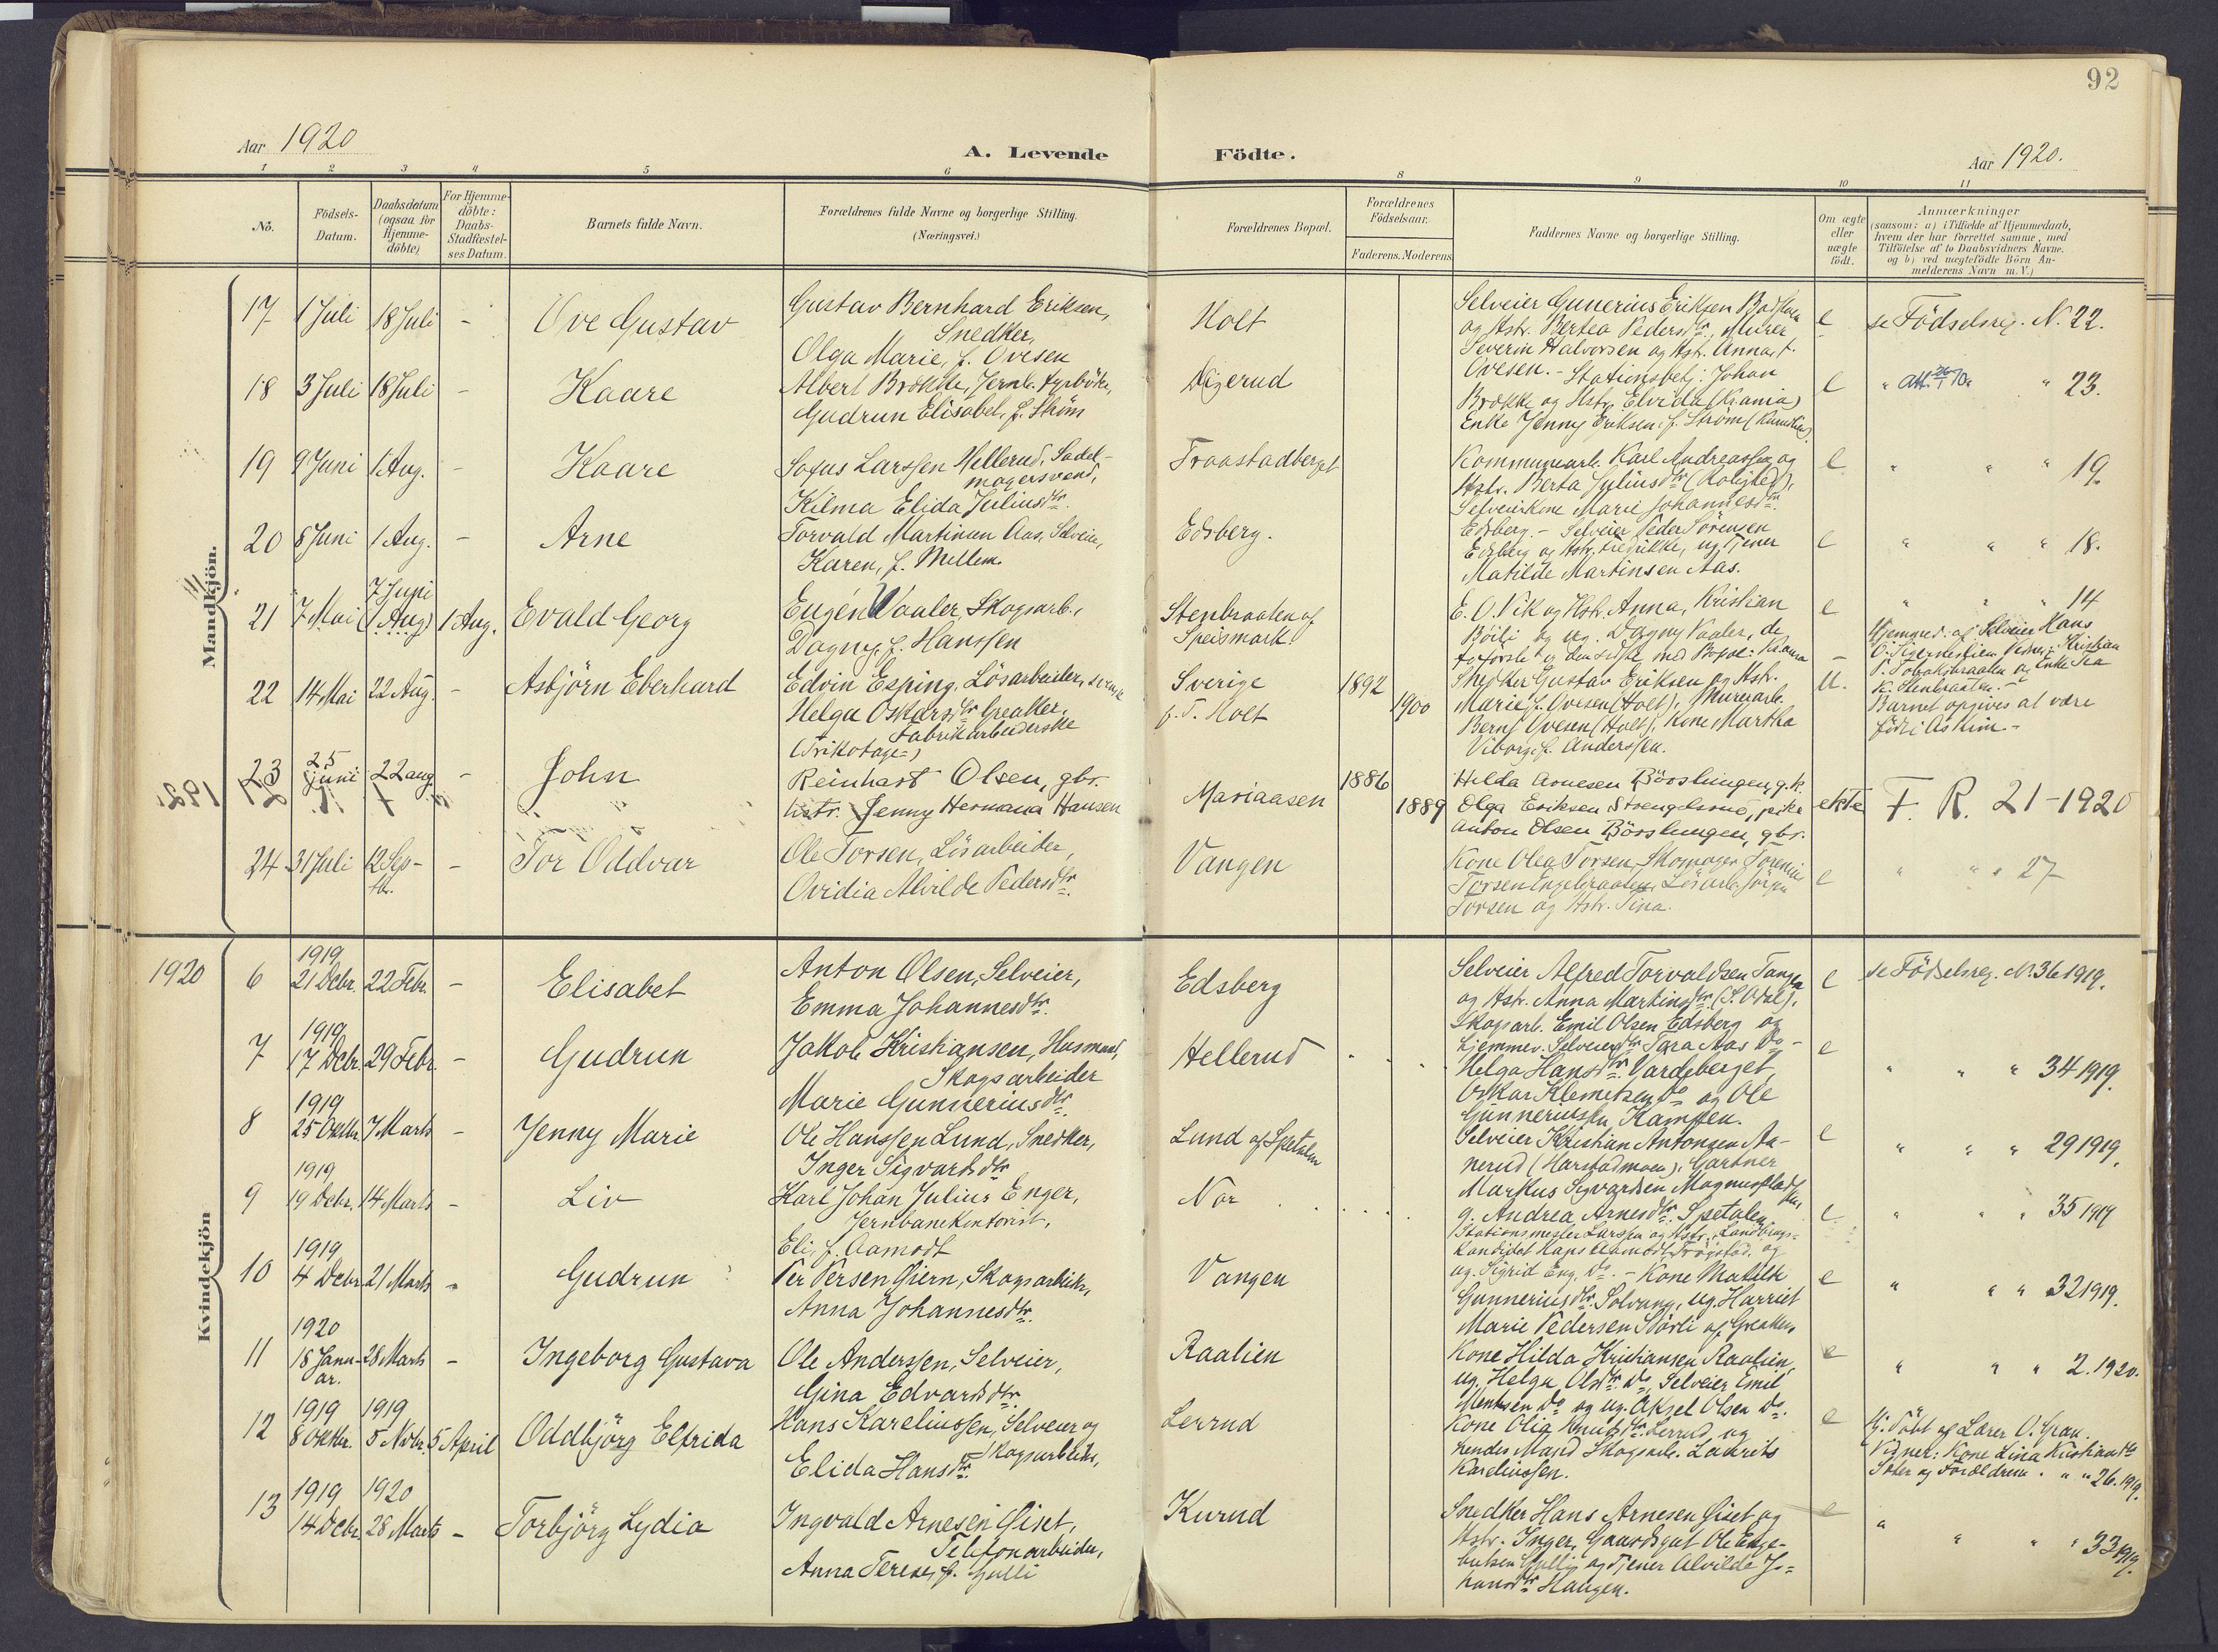 92
Aar 1920
A. Levende
Födte.
Aar 1920.
1 2 3 4 5 6 8 9 10 11
No.
Födsels-
Datum.
Daabsdatum
(ogsaa for
Hjemme-
döbte)
For Hjemme-
döbte:
Daabs-
Stadfæstel-
ses Datum.
Barnets fulde Navn.
Forældrenes fulde Navne og borgerlige Stilling.
(Næringsvei.)
Forældrenes Bopæl.
Forældrenes
Födselsaar.
Faderens. Moderens
Faddernes Navne og borgerlige Stilling.
Om ægte
eller
uægte
födt.
Anmærkninger
(saasom: a) i Tilfælde af Hjemmedaab,
hvem der har forrettet samme, med
Tilföielse af to Daabsvidners Navne.
og b) ved uægtefödte Börn An-
melderens Navn m. V.)
Mandkjön.
17 1 Juli 18 Juli - Ove Gustav
Gustav Bernhard Eriksen,
Snedker,
Olga Marie, f. Ovesen
Holt
Selveier Gunerius Eriksen
og Hstr. Bertea Pedersdtr, Murer
Severin Halvorsen og Hstr. Anna, f.
Ovesen.
e
se Födselsreg. N. 22.
18 3 Juli 18 Juli - Kaare
Albert Brække, Jernb.
Gudrun Elisabet, f. Ström
Digerud
Stationsbetj. Johan
Brække og Hstr. Elvida (Kania)
Enke Jenny Eriksen, f. Ström
e
" Att. " 23.
19 9 Juni 1 Aug. - Kaare
Sofus Larssen Hellerud, Sadel-
magersvend,
Kilma Elida Juliusdtr.
Traastadberget
Kommunearb. Karl Andreassen og
Hstr. Berta Juliusdtr (Rolighed),
Selveierkone Marie Johannesdtr.
Edsberg.
e
" " " 19.
20 8 Juni 1 Aug. - Arne
Torvald Martinsen Aas, Selveier,
Karen, f. Mellem.
Edsberg.
- Selveier Peder Sörensen
Edsberg og Hstr. Fredrikke, ug. Tjener
Matilde Martinsen Aas.
e
" " " 18.
21 7 Mai 7 Juni
(1 Aug) 1 Aug. Evald Georg
Eugén Vaaler, Skogsarb.,
Dagny, f. Hanssen
Stenbraaten af
Speismark
E. O. Vik og Hstr. Anna, Kristian
og ug. Dagny Vaaler, de
e
" " " 14
Hjemmed. af Selveier Hans
22 14 Mai 22 Aug. - Asbjörn Eberhard
Edvin Esping, Lösarbeider, svensk
Helga Oskarsdtr Greaker,
Fabrikarbeiderske
(Trikotage=)
Sverige
p. T. Holt
1892
1900
Snedker Gustav Eriksen og Hstr.
Marie, f. Ovesen (Holt), Murerarb.
Bernt Ovesen (Holt), Kone Martha
Viborg, f. Anderssen.
U.
Barnet opgives at være
född i Askim.-
23 25
juni 22 aug - John
Reinhart Olsen, gbr.
hstr. Jenny Hermana Hansen
Mariaasen
1886
1889
Hilda Arnesen Börslungen, g.k.
Olga Eriksen Strengelsrud, pike
Anton Olsen Börslungen, gbr.
ekte
F. R. 21-1920
24 31 Juli 12 Sep-
tbr. - Tor Oddvar
Ole Torsen, Lösarbeider,
Ovidia Alvilde Pedersdtr.
Vangen
Kone Olea Torsen, Skomager
Torsen Engebraaten, Lösarb. Jörgen
Torsen og Hstr. Tina.
e
" " " 27
Kvindekjön
1920
6 1919
21 Debr. 22 Febr. - Elisabet
Anton Olsen, Selveier,
Emma Johannesdtr.
Edsberg
Selveier Alfred Torvaldsen Tangen
og Hstr. Anna Martinsdtr (S. Odal),
Skogsarb. Emil Olsen Edsberg og
hjemmev. Selveierdtr Tora Aas do -
e
se Födselsreg. N. 36 1919.
7 1919
17 Debr. 29 Febr. - Gudrun
Jakob Kristiansen, Husmand,
Skogsarbeider
Marie Gunneriusdtr.
Hellerud
Helga Hansdtr. Vardeberget,
Oskar Klemetsen do og Ole
Gunneriussen Kampen.
e
" " " 34 1919.
8 1919
25 Oktbr. 7 Marts - Jenny Marie
Ole Hanssen Lund, Snedker,
Inger Sigvardsdtr
Lund af Spetalen
Selveier Kristian Antonsen Aa-
nerud (Harstadmoen), Gartner
Markus Sigvardsen
g. Andrea Arnesdtr. Spetalen
e
" " " 29 1919.
9 1919
19 Debr. 14 Marts - Liv
Karl Johan Julius Enger,
Jernbanekontorist,
Eli, f. Aamodt
Nor
Stationsmester Larssen og Hstr., Landbrugs-
kandidat Hans Aamodt, Trögstad, og
ug. Sigrid Eng, do. -
e
" " " 35 1919
10 1919
4 Debr. 21 Marts - Gudrun
Per Persen Gjern, Skogsarbeider,
Anna Johannesdtr.
Vangen
Kone Matilde
Gunneriusdtr. Solvang, ug. Harriet
Marie Pedersen
e
" " " 32 1919.
11 1920
18 Janu-
ar. 28 Marts - Ingeborg Gustava
Ole Anderssen, Selveier,
Gina Edvardsdtr.
Raalien
Kone Hilda Kristiansen Raalien,
ug. Helga Olsdtr. do, Selveier Emil
do og ug. Aksel Olsen do.
e
" " " 2. 1920.
12 1919
8 Oktbr. 1919
5 Novbr. 5 April Oddbjörg Elfrida
Hans Kareliussen, Selveier og
Skogsarbeider,
Elida Hansdtr.
Lerrud
Kone Olia Knutsdtr. Lerrud, og
hendes Mand Skogsarb. Laurits
Kareliussen.
e
Hj. döbt af Lærer O. Gran.
Vidner: Kone Lina Kristiansdtr
Sæter og Forældrene. " " 26. 1919.
13 1919
14 Debr. 1920
28 Marts - Torbjörg Lydia
Ingvald Arnesen Giset,
Telefonarbeider,
Anna Terese, f. Gulli
Kurud
Snedker Hans Arnesen Giset og
Hstr. Inger, Gaardsgut Ole Enge-
bretsen Gulli og Tjener Alvilde Jo-
hansdtr Haugen.
e
" " " " 33 1919.